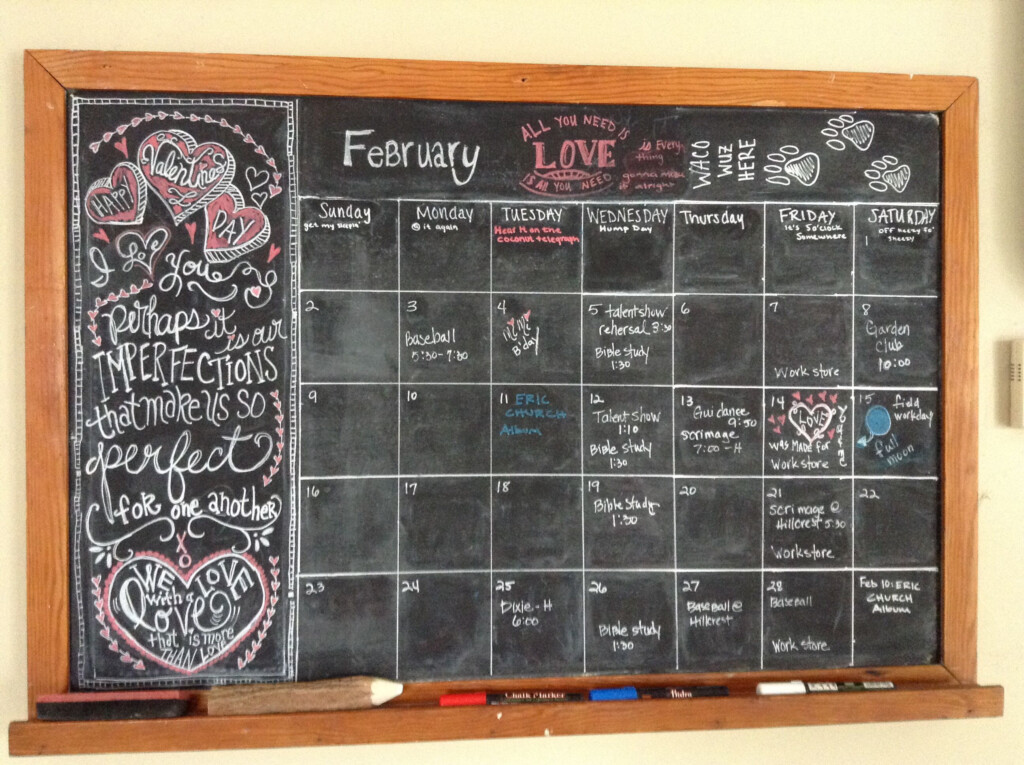 HAPPY
Valentines
DAY
I LOVE
You
Perhaps it
is our
IMPERFECTIONS
that make us so
perfect
for one another
XO
WE LOVE
with a
LOVE
that is more
THAN LOVE
February
ALL YOU NEED IS
LOVE
IS ALL YOU NEED
is Every
thing
gonna make
it alright
WACO
WUZ
HERE
Sunday
Monday
@ it again
TUESDAY
Hear It on the
coconut telegraph
WEDNESDAY
Hump Day
Thursday
FRIDAY
it's 5 o'clock
Somewhere
SATURDAY
1
2
3
Baseball
5:30-7:30
4
B'day
5 talentshow
rehersal 3:30
Bible study
1:30
6
7
Work store
8
Garden
Club
10:00
9
10
11 ERIC
CHURCH
Album
12
Talent Show
1:10
Bible study
1:30
13
Guidance
9:50
scrimage
7:00-H
14
LOVE
was MADE for
YOU & ME
Work store
15 field
workday
full
moon
16
17
18
19
Bible Study
1:30
20
21
Scrimage @
Hillcrest 5:30
Workstore
22
23
24
25
Dixie-H
6:00
26
Bible study
1:30
27
Baseball @
Hillcrest
28
Baseball
Work store
Feb 10: ERIC
CHURCH
Album
Chalk Marker